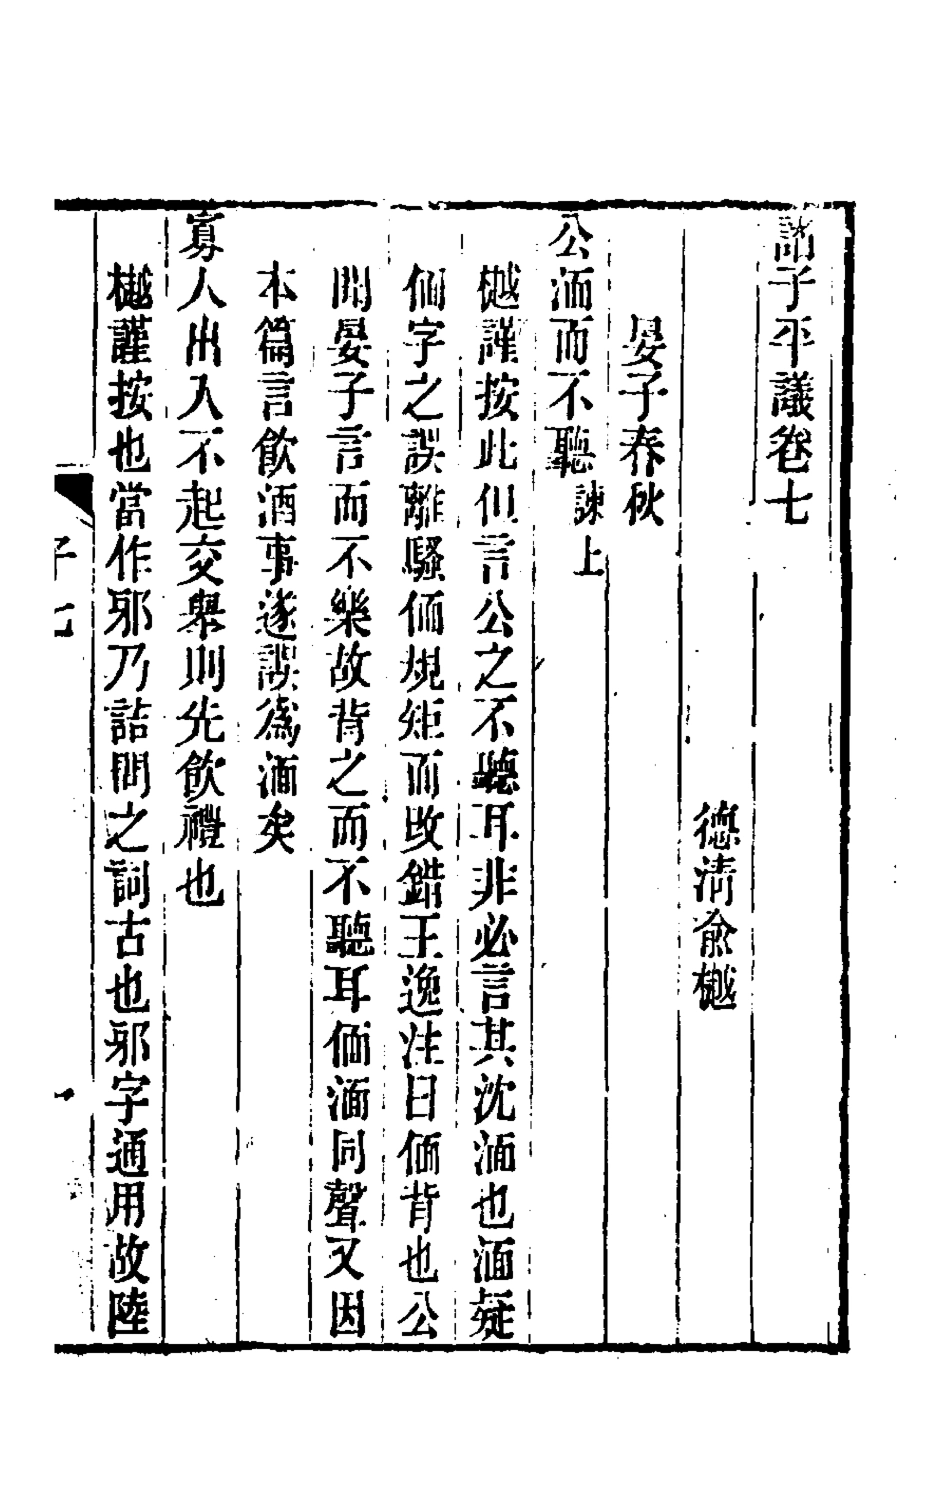 諸子平議卷七
德清俞樾
晏子春秋
公湎而不聽諫上
樾謹按此但言公之不聽耳非必言其沈湎也湎疑
偭字之誤離騷偭規矩而改錯王逸注曰偭背也公
聞晏子言而不樂故背之而不聽耳偭湎同聲又因
本篇言飲酒事遂誤爲湎矣
寡人出入不起交舉則先飲禮也
樾謹按也當作邪乃詰問之詞古也邪字通用故陸
子七